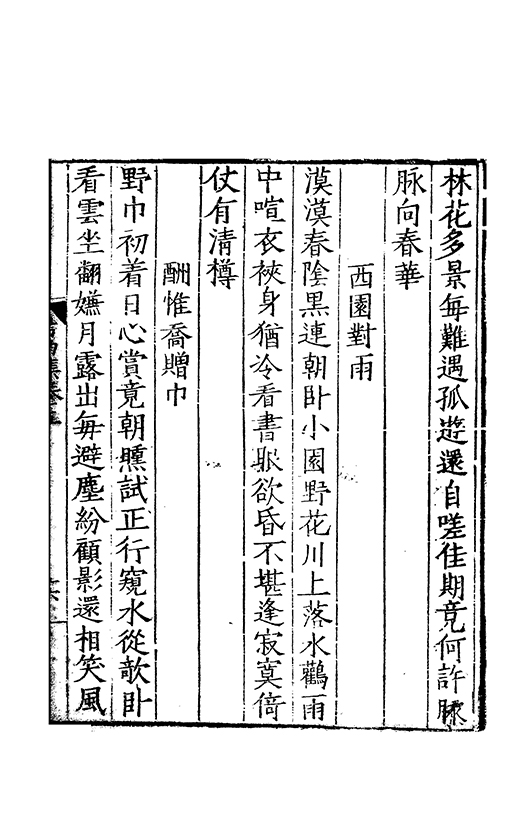 林花多景每難遇孤遊還自嗟佳期竟何許脉
脉向春華
西園對雨
漠漠春陰黒連朝卧小園野花川上落水鸛雨
中喧衣裌身猶冷看書眼欲昏不堪逢寂寞倚
仗有清樽
酬惟喬贈巾
野巾初着日心賞竟朝醺試正行窺水從欹卧
看雲坐翻嫌月露出每避塵紛顧影還相笑風